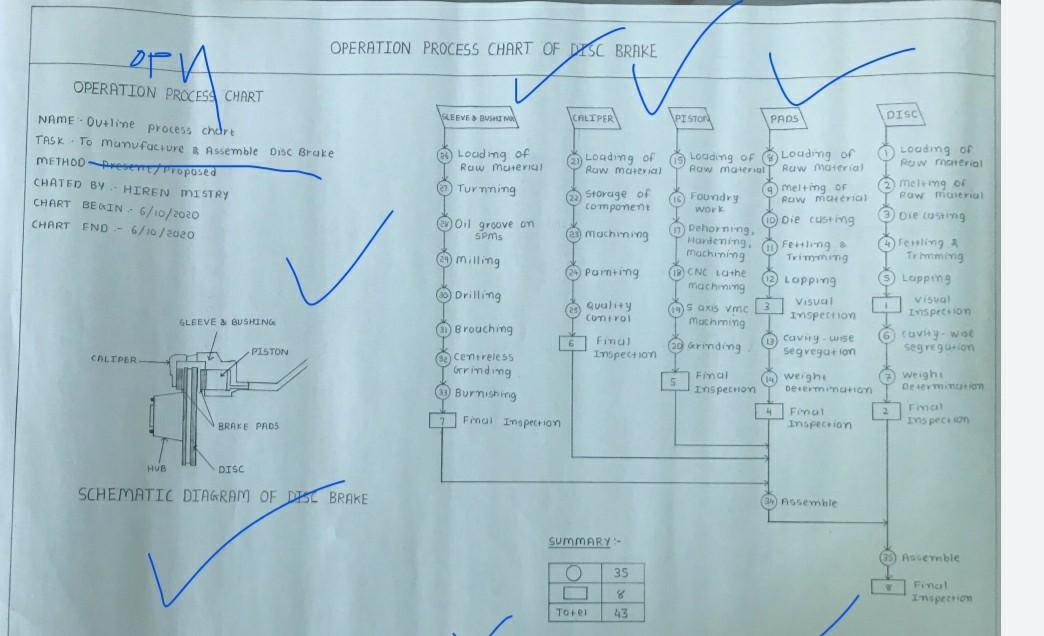 OPERATION PROCESS CHART OF DISC BRAKE
OPERATION PROCESS CHART
NAME - Outline process chart
TASK - To manufacture & Assemble Disc Brake
METHOD - Present/Proposed
CHATED BY :- HIREN MISTRY
CHART BEGIN :- 6/10/2020
CHART END :- 6/10/2020
SLEEVE & BUSHING
CALIPER
PISTON
BRAKE PADS
HUB
DISC
SCHEMATIC DIAGRAM OF DISC BRAKE
SLEEVE & BUSHING
26 Loading of
Raw material
27 Turnming
28 Oil groove on
SPMs
29 Milling
30 Drilling
31 Broaching
32 Centreless
Grinding
33 Burnishing
7 Final Inspection
CALIPER
21 Loading of
Raw material
22 Storage of
component
23 Machining
24 Painting
25 Quality
control
6 Final
Inspection
PISTON
15 Loading of
Raw material
16 Foundry
work
17 Dehorning,
Hardening,
machining
18 CNC Lathe
machining
19 5 axis vmc
Machining
20 Grinding
5 Final
Inspection
PADS
8 Loading of
Raw material
9 melting of
Raw material
10 Die casting
11 Fettling &
Trimming
12 Lapping
3 Visual
Inspection
13 Cavity-wise
segregation
14 weight
Determination
4 Final
Inspection
DISC
1 Loading of
Raw material
2 Melting of
Raw material
3 Die casting
4 Fettling &
Trimming
5 Lapping
1 Visual
Inspection
6 Cavity-wise
segregation
7 weight
Determination
2 Final
Inspection
34 Assemble
35 Assemble
8 Final
Inspection
SUMMARY :-
35
8
Total 43